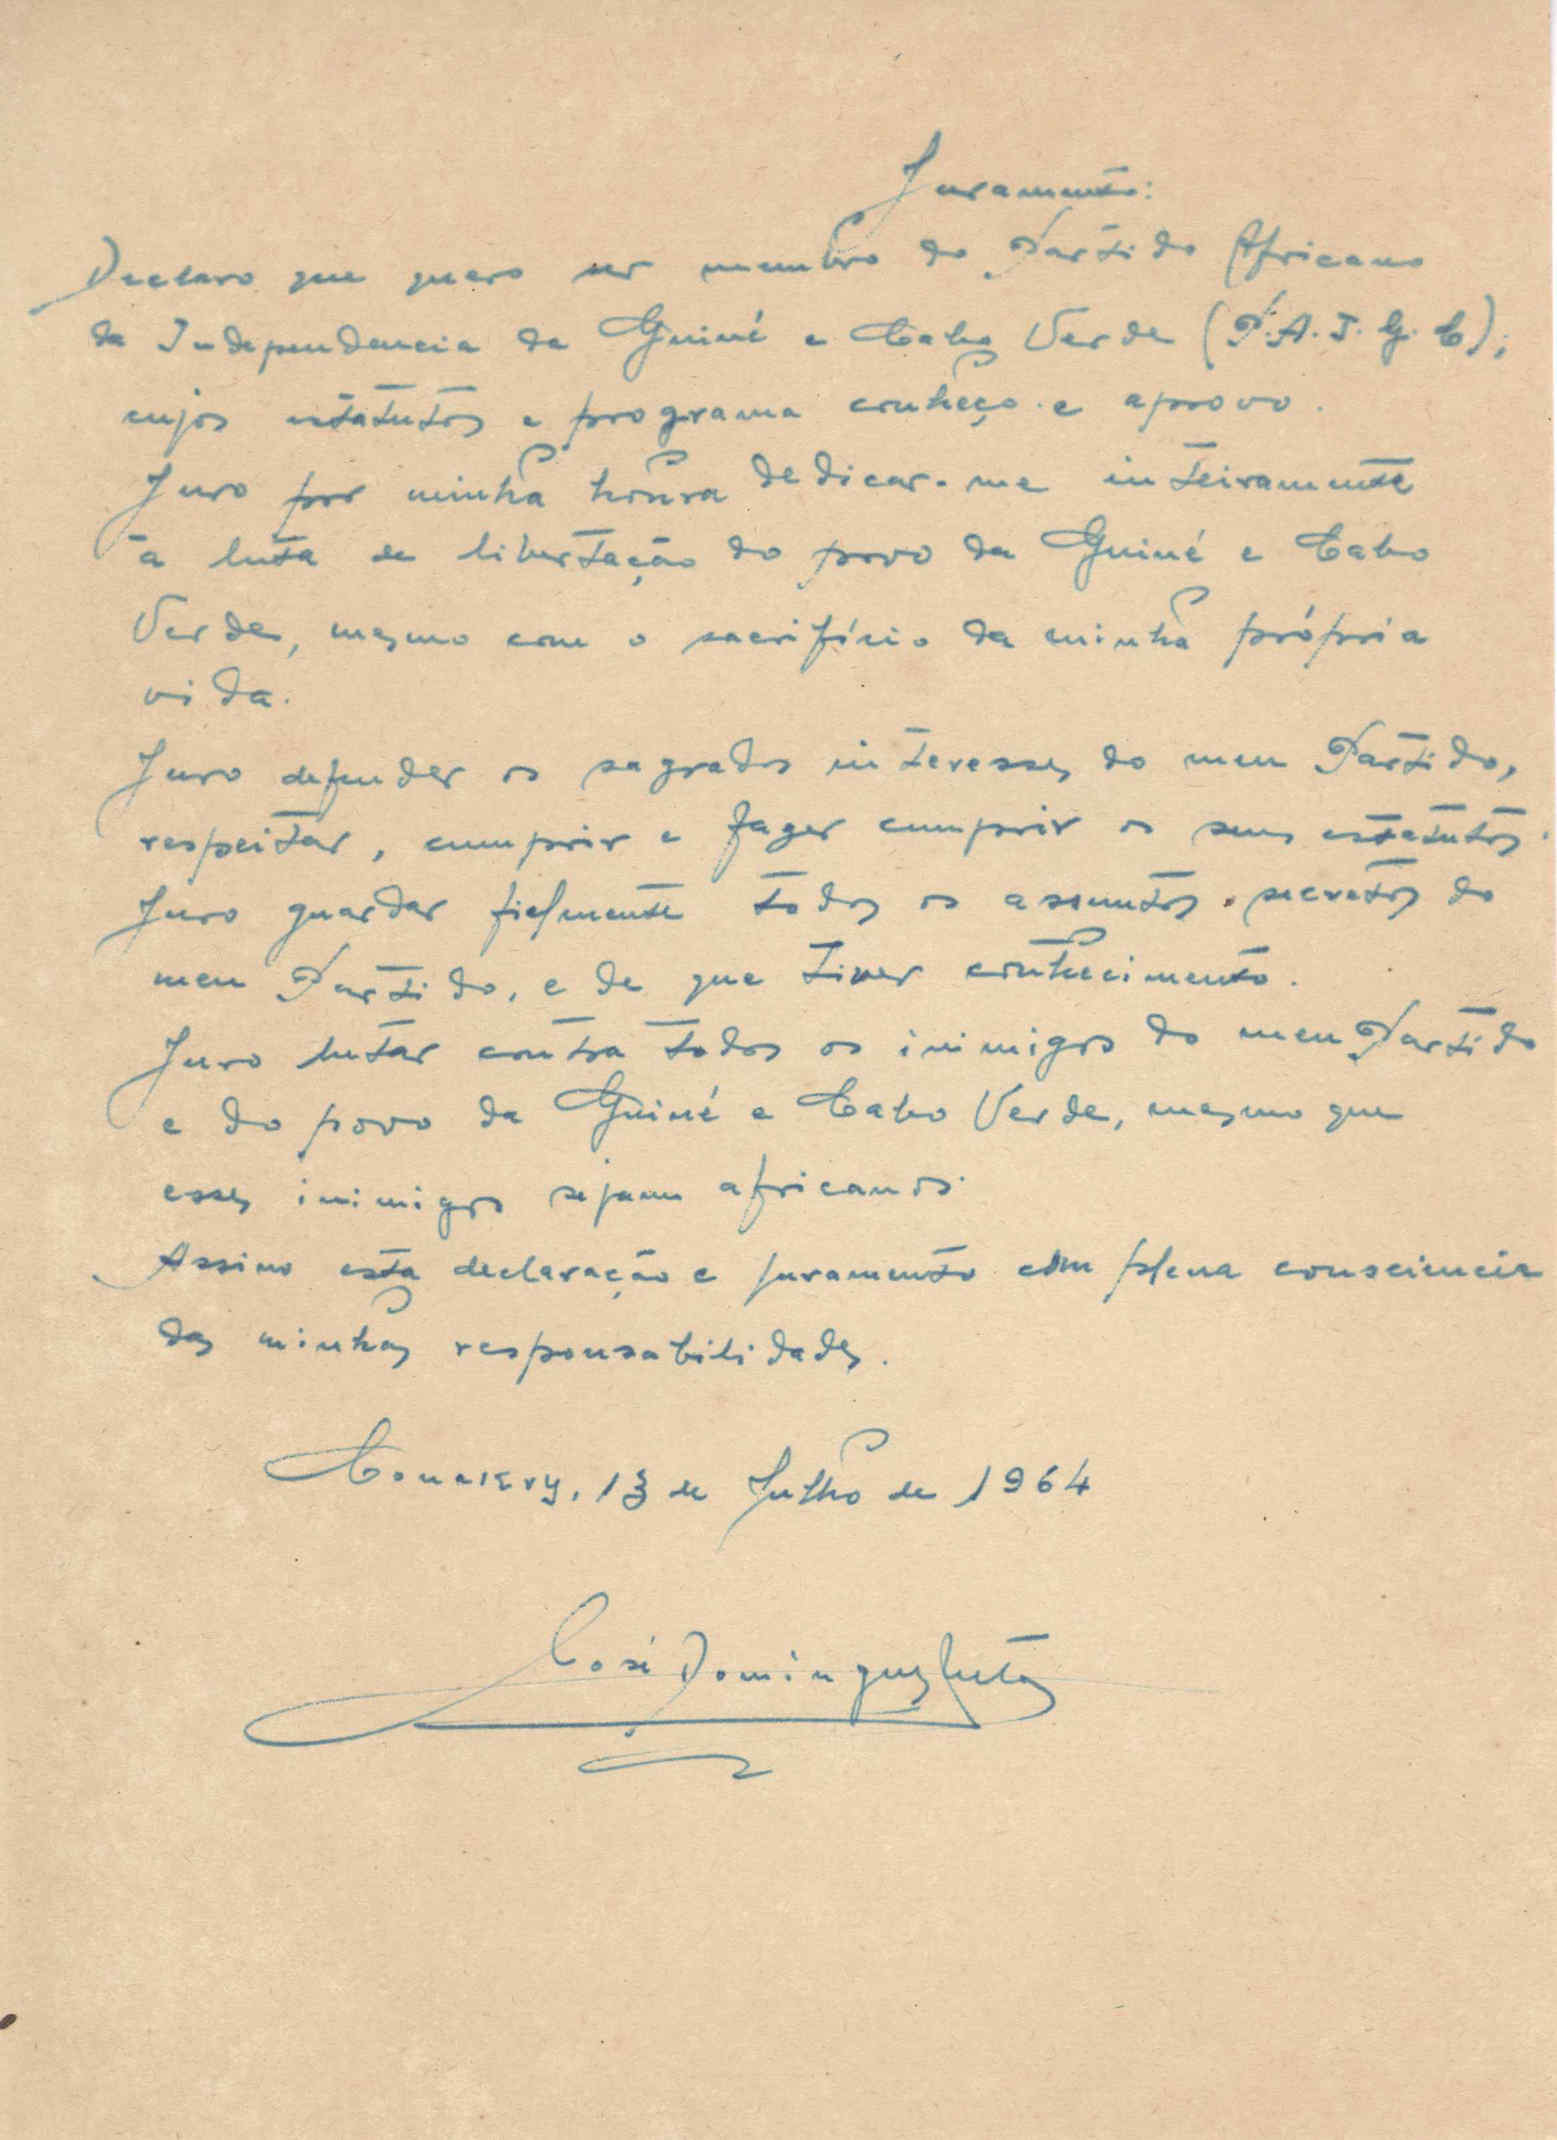 Juramento:
Declaro que quero ser membro do Partido Africano
da Independencia da Guiné e Cabo Verde (P.A.I.G.C);
cujos estatutos e programa conheço e aprovo.
Juro por minha honra dedicar-me inteiramente
à luta de libertação do povo da Guiné e Cabo
Verde, mesmo com o sacrifício da minha própria
vida.
Juro defender os sagrados interesses do meu Partido,
respeitar, cumprir e fazer cumprir os seus estatutos.
Juro guardar fielmente todos os assuntos secretos do
meu Partido, e de que tiver conhecimento.
Juro lutar contra todos os inimigos do meu Partido
e do povo da Guiné e Cabo Verde, mesmo que
esses inimigos sejam africanos.
Assino esta declaração e juramento com plena consciencia
das minhas responsabilidades.
Conakry, 13 de Julho de 1964
José Domingues